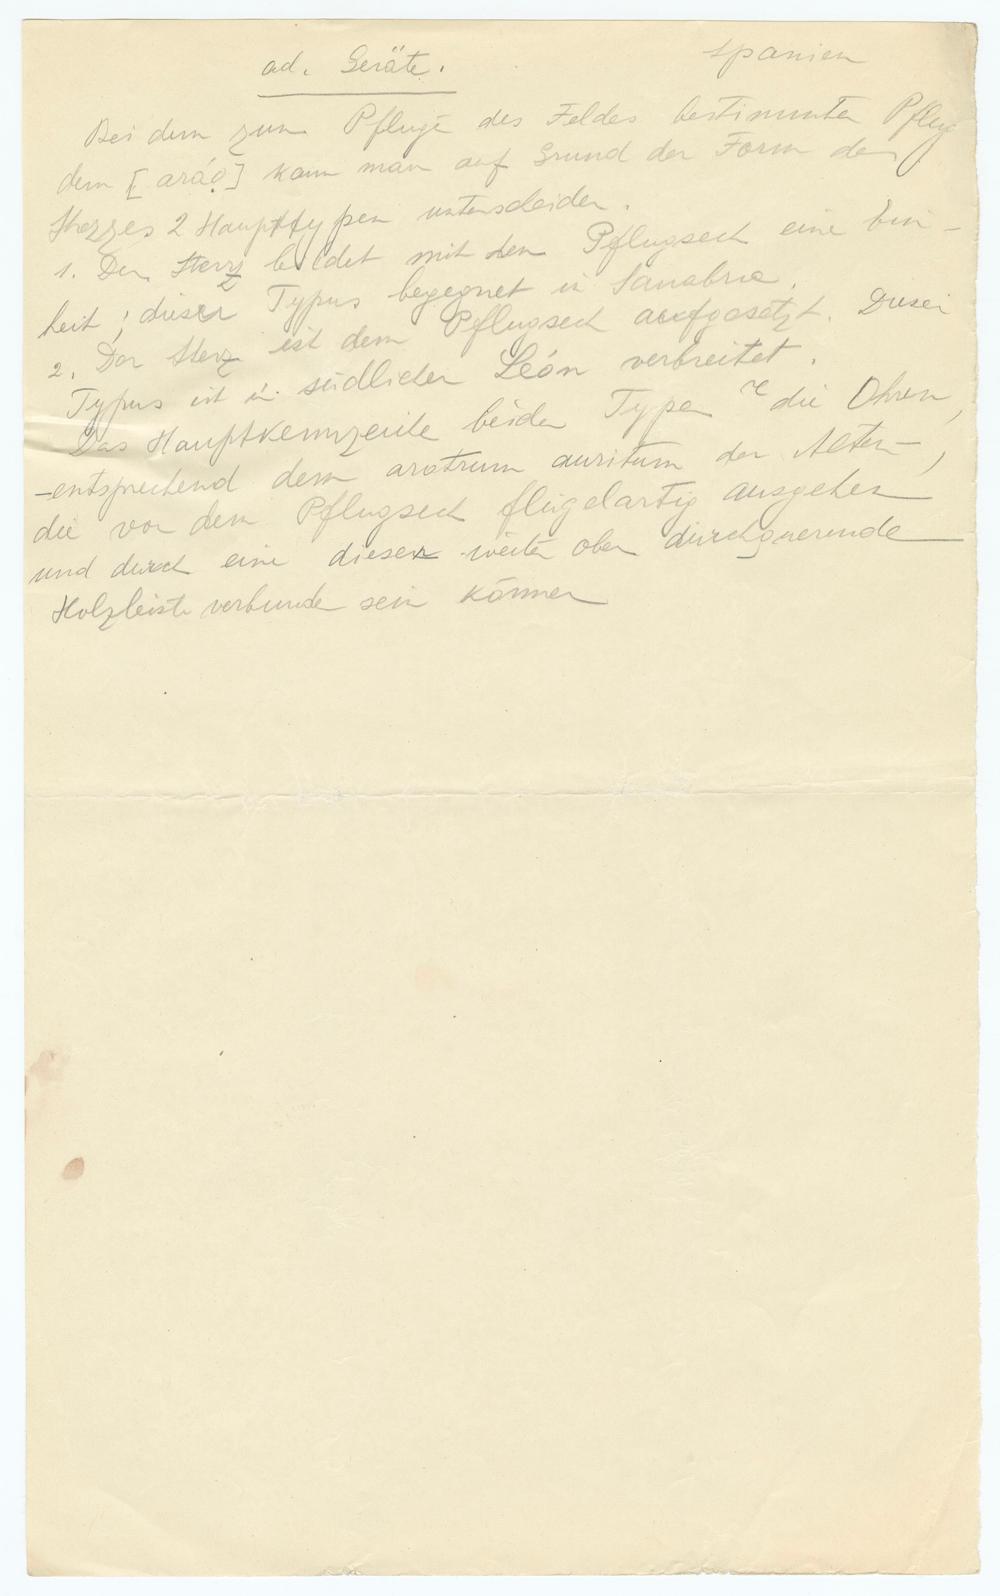 ad. Geräte. Spanien
Bei dem zum Pfluge des Feldes bestimmten Pflug
dem [aráọ] kann man auf Grund der Form des
Sterzes 2 Haupttypen unterscheiden.
1. Der Sterz bildet mit dem Pflugsech eine Ein-
heit; dieser Typus begegnet in Sanabria.
2. Der Sterz ist dem Pflugsech aufgesetzt. Dieser
Typus ist in südlichen León verbreitet.
Das Hauptkennzeichen beider Typen die Ohren,
-entsprechend dem aratrum auritum der Alten-,
die von dem Pflugsech flügelartig ausgehen
und durch eine diesen weiter oben durchquerende
Holzleiste verbunden sein können